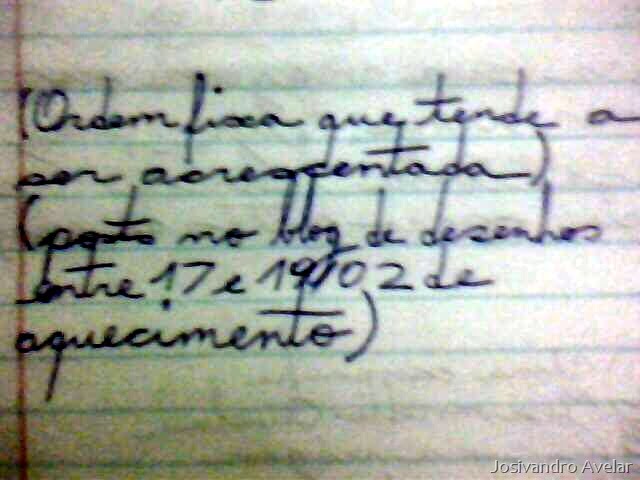 (Ordem fixa que tende a
ser acrescentada)
(posts no blog de desenhos
entre 17 e 19/02 de
aquecimento)
Josivandro Avelar